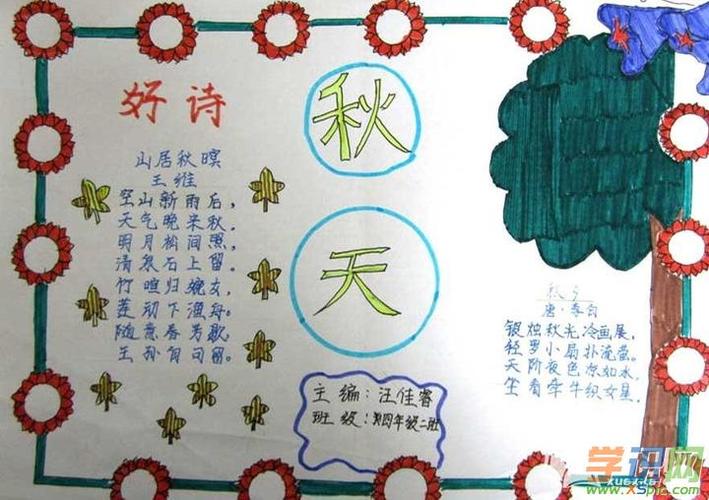 好诗
秋
天
山居秋暝
王维
空山新雨后，
天气晚来秋。
明月松间照，
清泉石上留。
竹喧归 女，
莲动下渔舟。
随意春芳歇，
王孙自可留。
秋夕
唐·李白
银烛秋光冷画展，
轻罗小扇扑流萤。
天阶夜色凉如水，
坐看牵牛织女星。
主编：汪佳睿
班级： 四年级二班
学识网
www.xspic.com